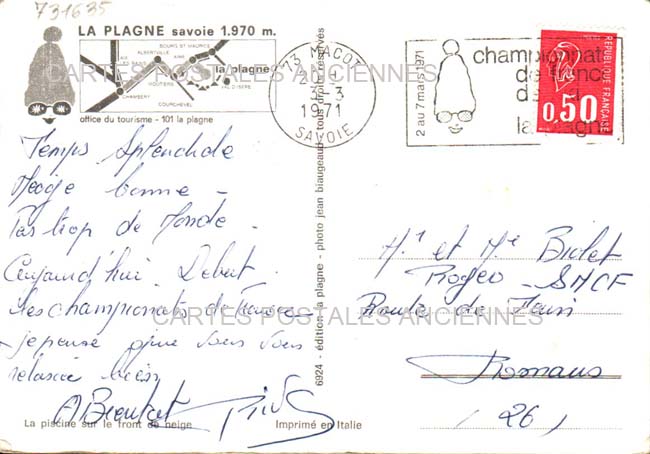 731635
LA PLAGNE savoie 1.970 m.
BOURG ST MAURICE
ALBERTVILLE
AIME
AIX LES BAINS
la plagne
MOUTIERS
VAL D'ISERE
CHAMBERY
COURCHEVEL
office du tourisme - 101 la plagne
73 MACOT
2 -3
1971
SAVOIE
2 au 7 mars 1971
championnats
de france
de ski
la plagne
REPUBLIQUE FRANÇAISE
0,50
CARTES POSTALES ANCIENNES
Temps Splendide
Neige bonne -
Pas trop de Monde.
Aujourd'hui Debut
des championnats de France -
- je pense que vous vous
bien
A Bientot
Mr et Me Biolet
Roger - SNCF
Route de
Romans
(26)
CARTES POSTALES ANCIENNES
6924 - édition la plagne - photo jean biaugeaud - tous droits réservés
La piscine sur le front de neige
Imprimé en Italie